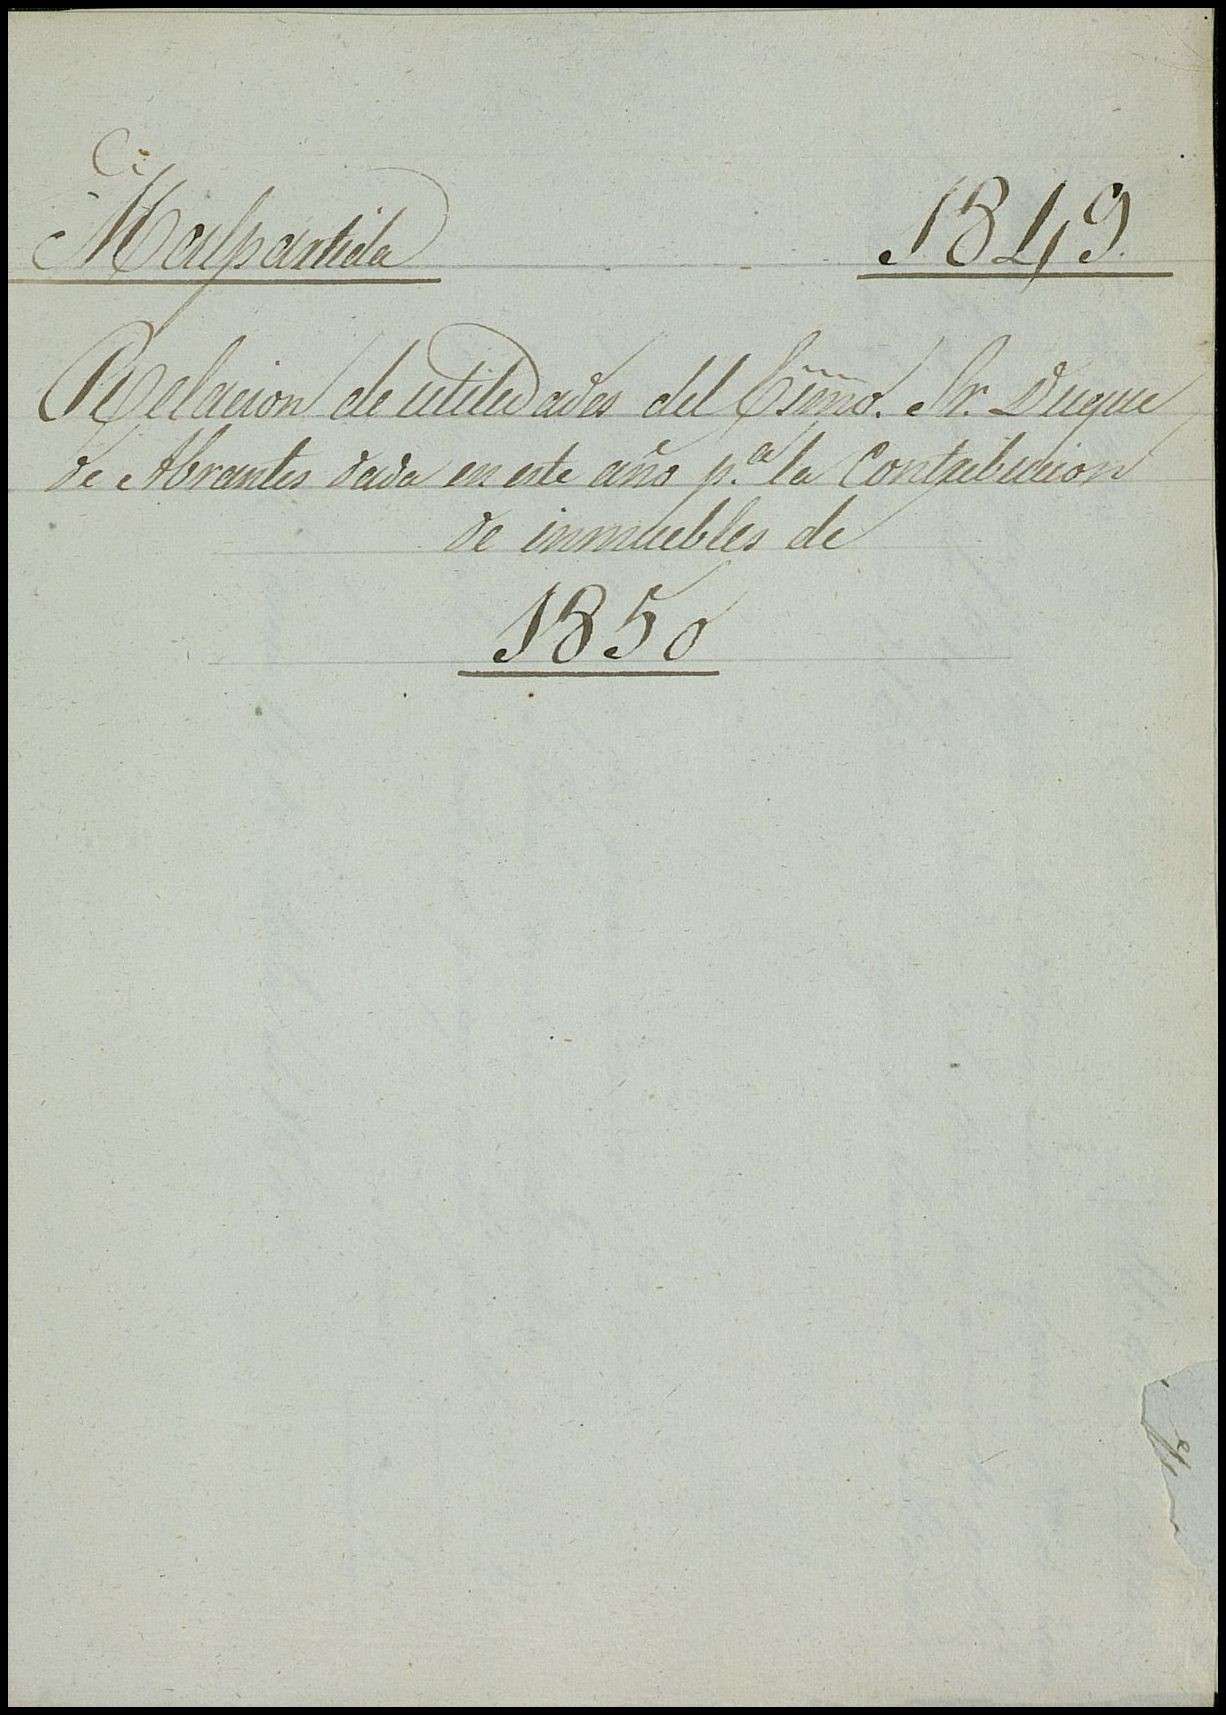 Malpartida
1849.
Relacion de utilidades del Exmo. Sr. Duque
de Abrantes dada en este año p.ª la Contribucion
de inmuebles de
1850